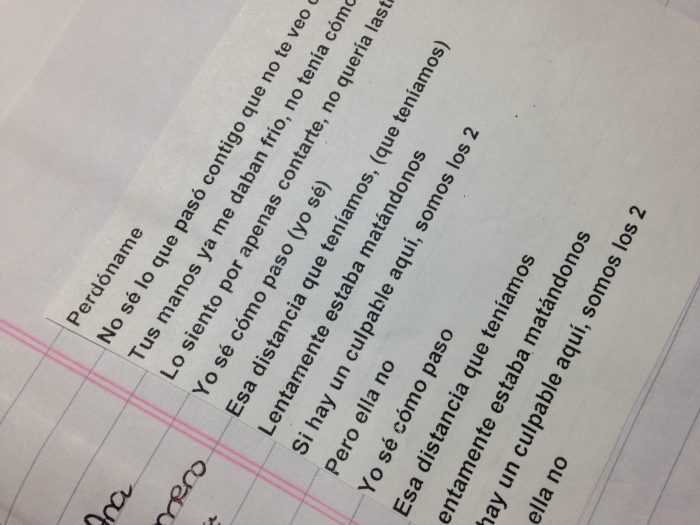 Perdóname
No sé lo que pasó contigo que no te veo
Tus manos ya me daban frío, no tenía cómo
Lo siento por apenas contarte, no quería
Yo sé cómo paso (yo sé)
Esa distancia que teníamos, (que teníamos)
Lentamente estaba matándonos
Si hay un culpable aquí, somos los 2
Pero ella no
Yo sé cómo paso
Esa distancia que teníamos
entamente estaba matándonos
hay un culpable aquí, somos los 2
ella no
Ana